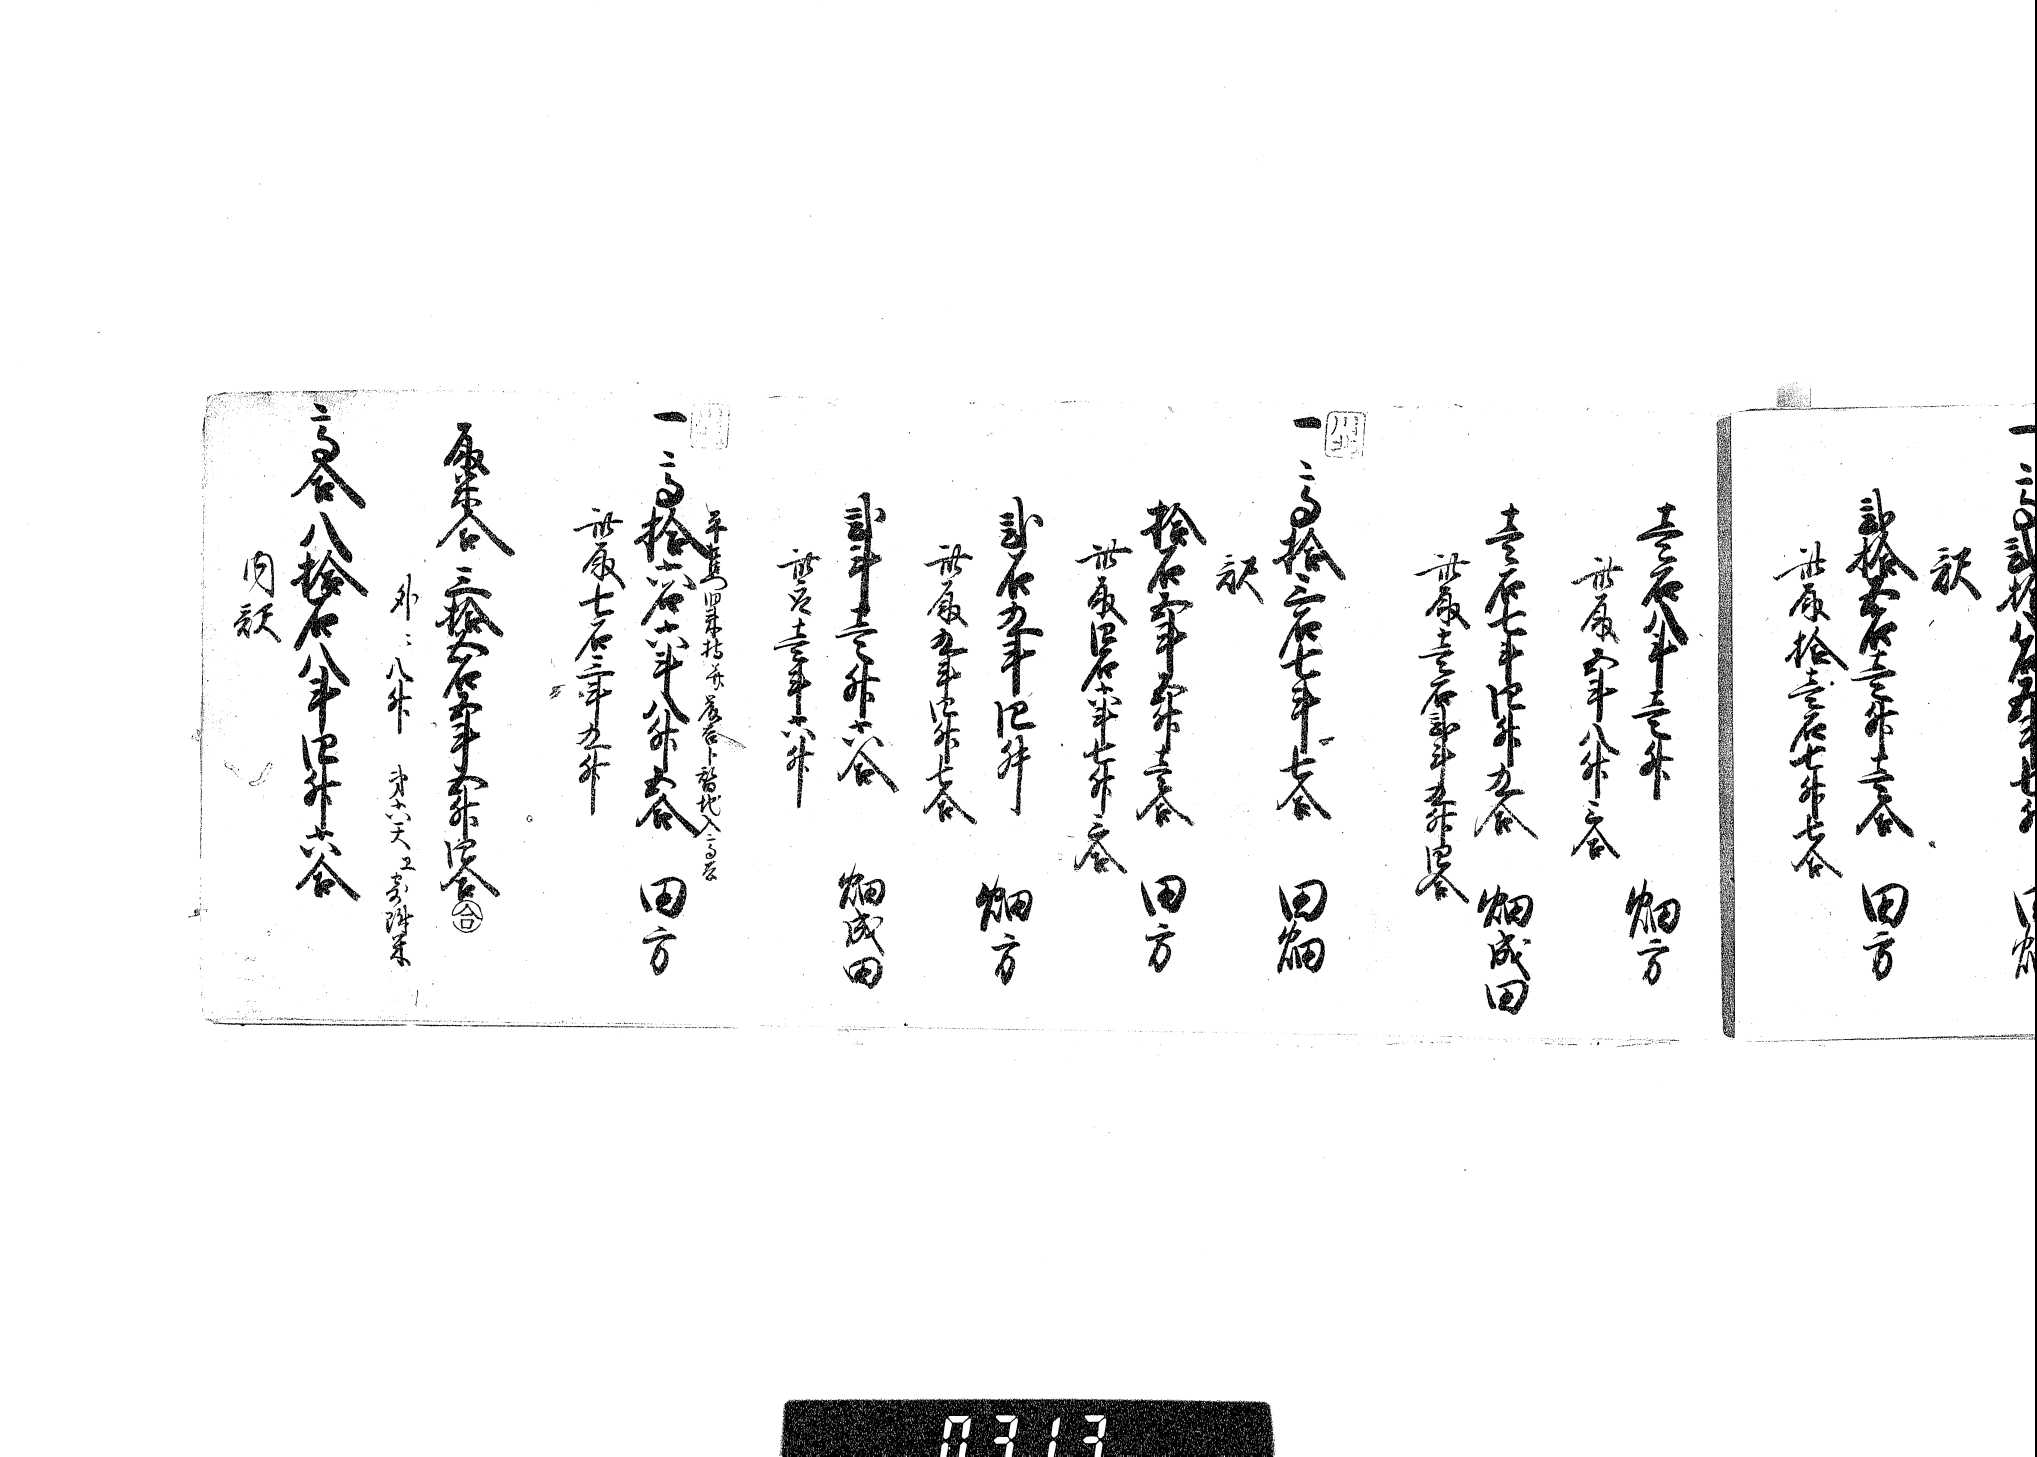 一高弐拾八石五斗七升 田畑
訳
弐拾五石壱升壱合 田方
此取拾壱石七升七合
壱石八斗壱升 畑方
此取五斗八升三合
壱石七斗四升九合 畑成田
此取壱石弐斗九升四合
一高拾三石七斗七合 田畑
訳
拾石五斗五升壱合 田方
此取四石六斗七升三合
弐石九斗四升 畑方
此取九斗四升七合
弐斗壱升六合 畑成田
此取壱斗六升
替地入
一高拾六石六斗八升五合 田方
此取七石三斗九升
取米合三拾五石五斗五升四合 合
外ニ八升 第六天江寄附米
高合八拾石八斗四升六合
内訳
0313